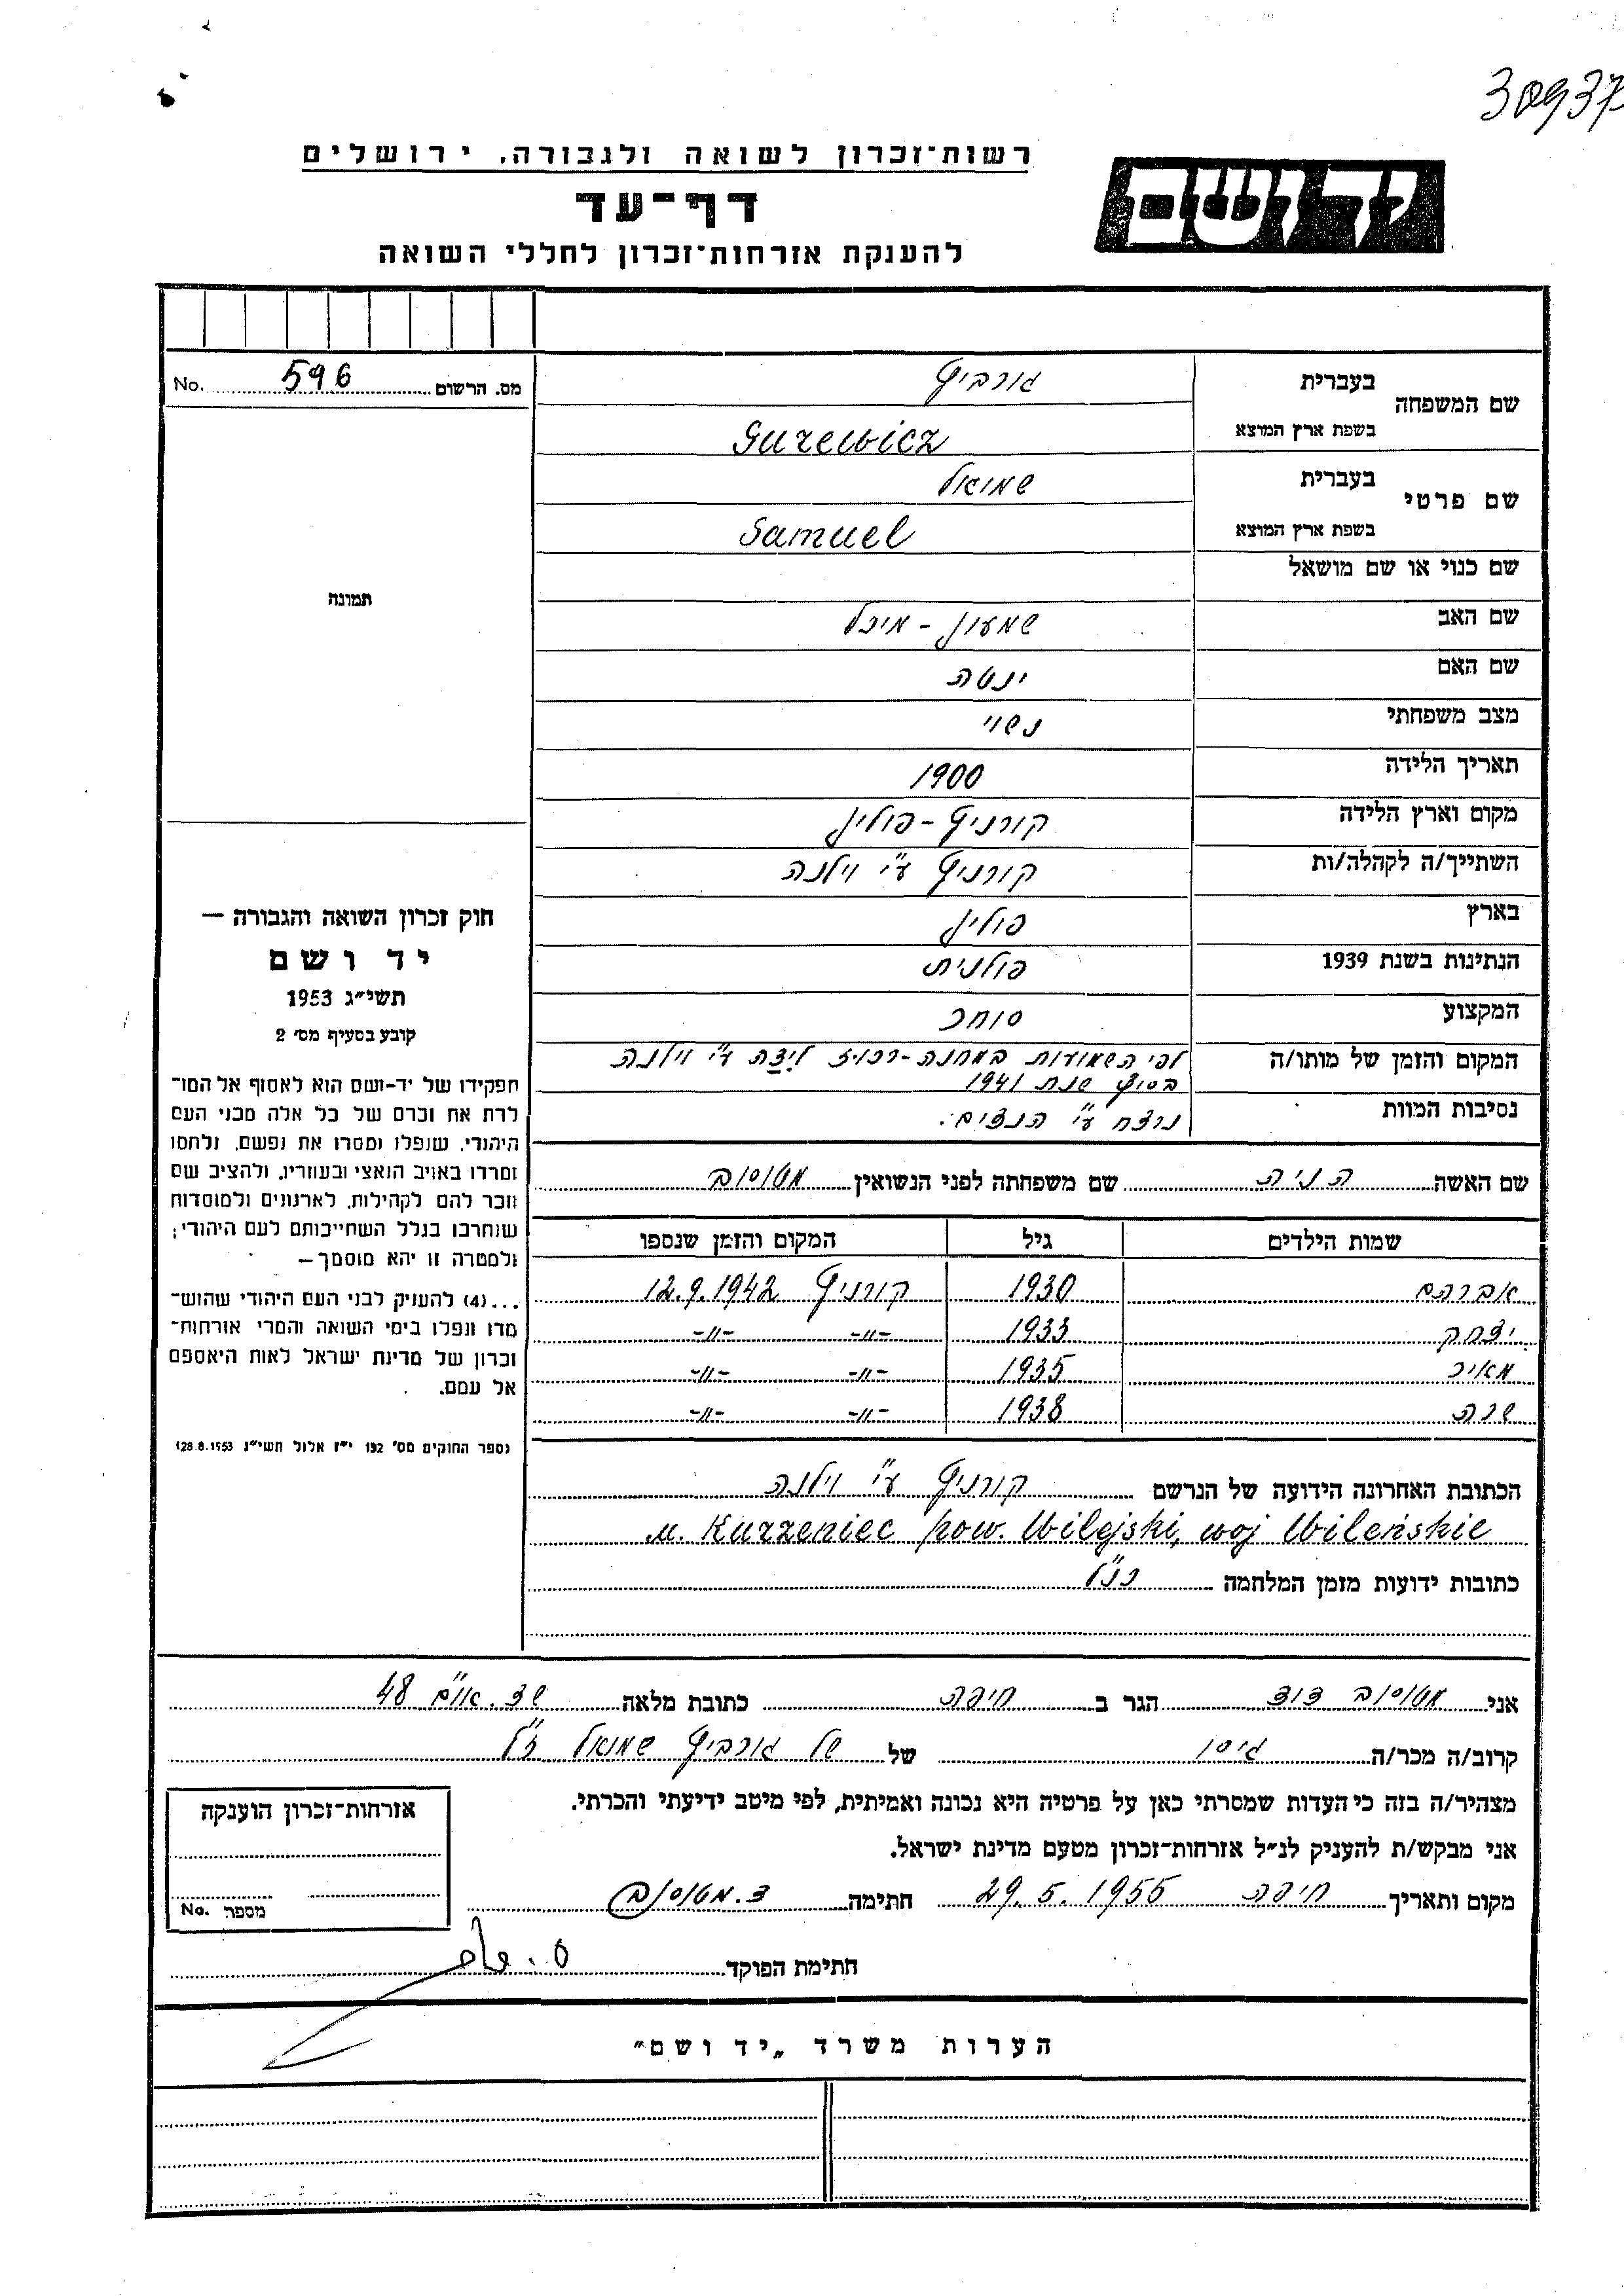 30937
רשות־זכרון לשואה ולגבורה, ירושלים
יד ושם
דף־עד
להענקת אזרחות־זכרון לחללי השואה
מס. הרשום 596 No.
שם המשפחה בעברית גורביץ
בשפת ארץ המוצא Gurewicz
שם פרטי בעברית שמואל
בשפת ארץ המוצא Samuel
שם כנוי או שם מושאל
שם האב שמעון - מיכל
שם האם ינטה
מצב משפחתי נשוי
תאריך הלידה 1900
מקום וארץ הלידה קורניץ - פולין
השתייך/ה לקהלה/ות קורניץ ע"י וילנה
בארץ פולין
הנתינות בשנת 1939 פולנית
המקצוע סוחר
המקום והזמן של מותו/ה לפי השמועות במחנה-רכוז לידה ע"י וילנה
בסוף שנת 1941
נסיבות המוות נרצח ע"י הנצים.
שם האשה הניה שם משפחתה לפני הנשואין
שמות הילדים גיל המקום והזמן שנספו
אברהם 1930 קורניץ 12.9.1942
יצחק 1933 -"- -"-
מאיר 1935 -"- -"-
שרה 1938 -"- -"-
תמונה
חוק זכרון השואה והגבורה —
יד ושם
תשי"ג 1953
קובע בסעיף מס' 2
תפקידו של יד-ושם הוא לאסוף אל המו־
לדת את זכרם של כל אלה מבני העם
היהודי, שנפלו ומסרו את נפשם, נלחמו
ומרדו באויב הנאצי ובעוזריו, ולהציב שם
וזכר להם לקהילות, לארגונים ולמוסדות
שנחרבו בגלל השתייכותם לעם היהודי;
ולמטרה זו יהא מוסמך —
...(4) להעניק לבני העם היהודי שהוש־
מדו ונפלו בימי השואה והמרי אזרחות־
זכרון של מדינת ישראל לאות היאספם
אל עמם.
(ספר החוקים מס' 132 י"ז אלול תשי"ג 28.8.1953)
הכתובת האחרונה הידועה של הנרשם קורניץ ע"י וילנה
m. Kurzeniec pow. Wilejski, woj Wileńskie
כתובות ידועות מזמן המלחמה כנ"ל
אני דוד הגר ב חיפה כתובת מלאה שד. או"ם 48
קרוב/ה מכר/ה גיסו של של גורביץ שמואל ז"ל
מצהיר/ה בזה כי העדות שמסרתי כאן על פרטיה היא נכונה ואמיתית, לפי מיטב ידיעתי והכרתי.
אני מבקש/ת להעניק לנ"ל אזרחות־זכרון מטעם מדינת ישראל.
מקום ותאריך חיפה 29.5.1955 חתימה ד.
חתימת הפוקד
אזרחות־זכרון הוענקה
מספר No.
הערות משרד „יד ושם"